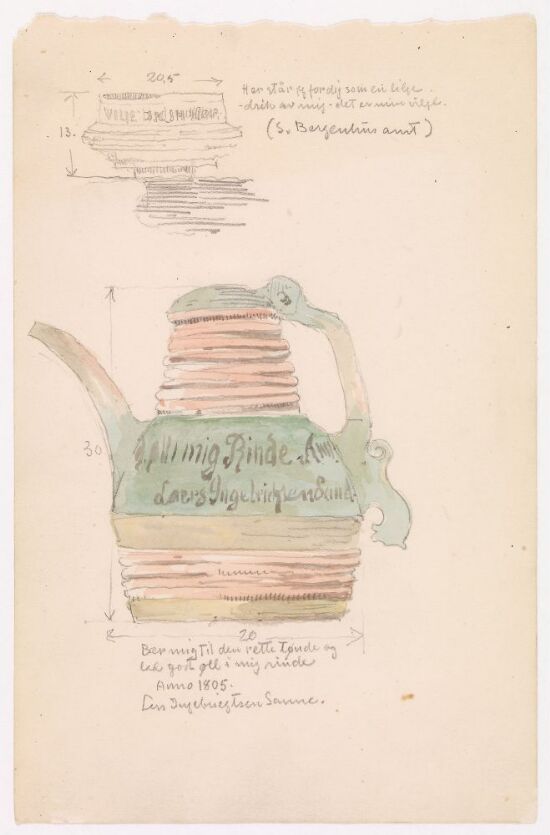 20,5
Her står jeg for dig som en lilje.
-drik av mig - det er min vilje.
(S. Bergenhus amt)
13.
VILJE
30
mig Rinde
Laers Ingebrictsen Sand
20
Bær mig til den rette tønde og
lad godt øll i mig rinde
Anno 1805.
Lars Ingebrigtsen Sanne.